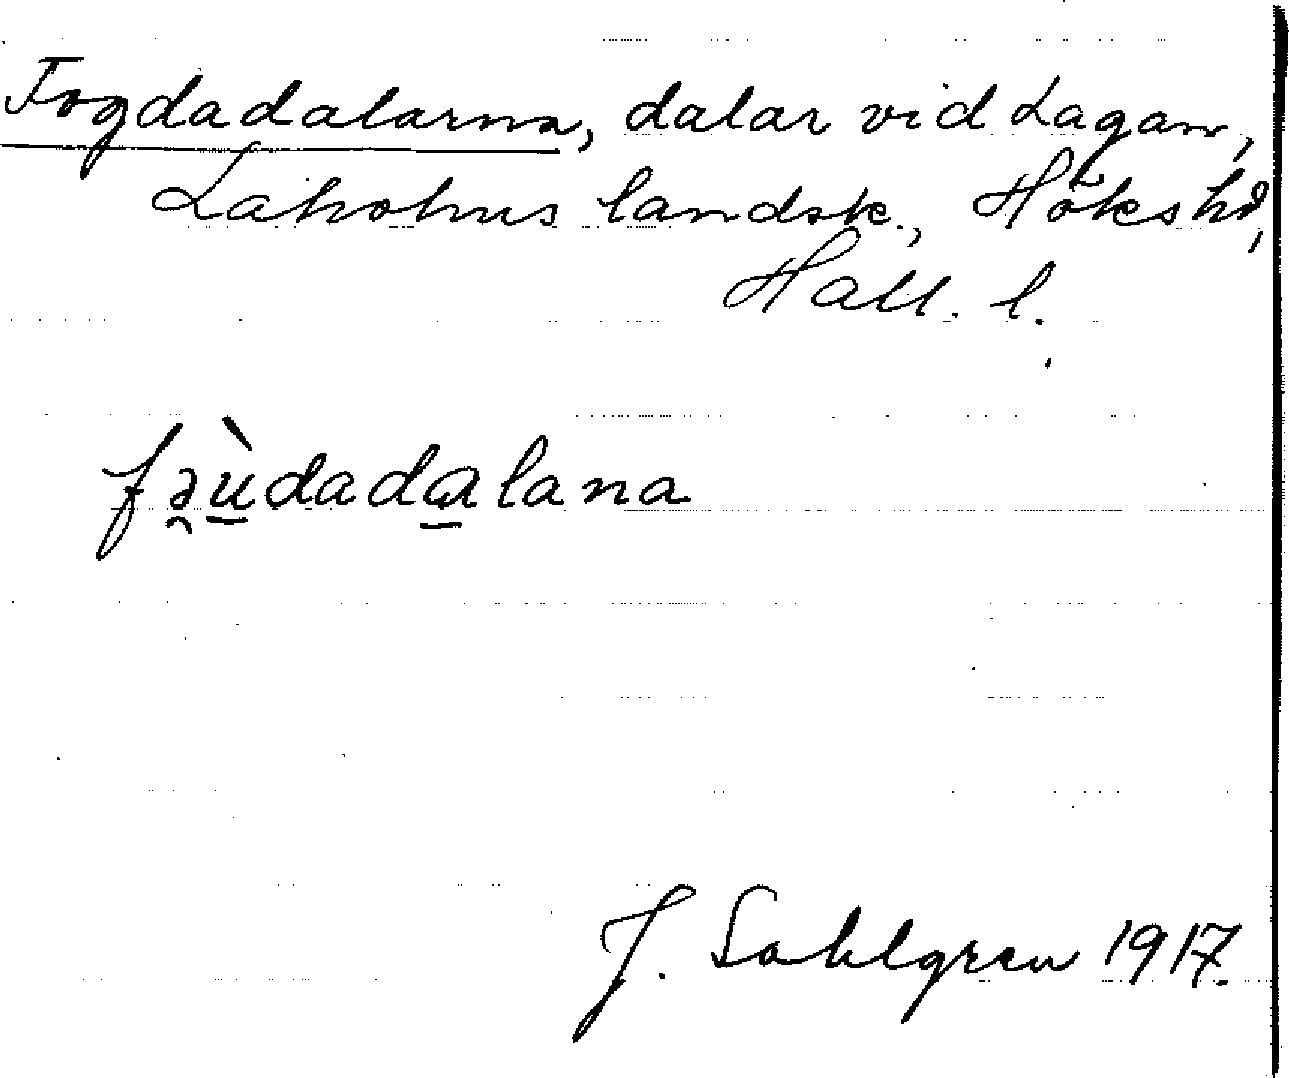 Fogdadalarna, dalar vid Lagan,
Laholms landsk., Höks hd,
Hall. l.
fə̯ùdadalana
J. Sahlgren 1917.